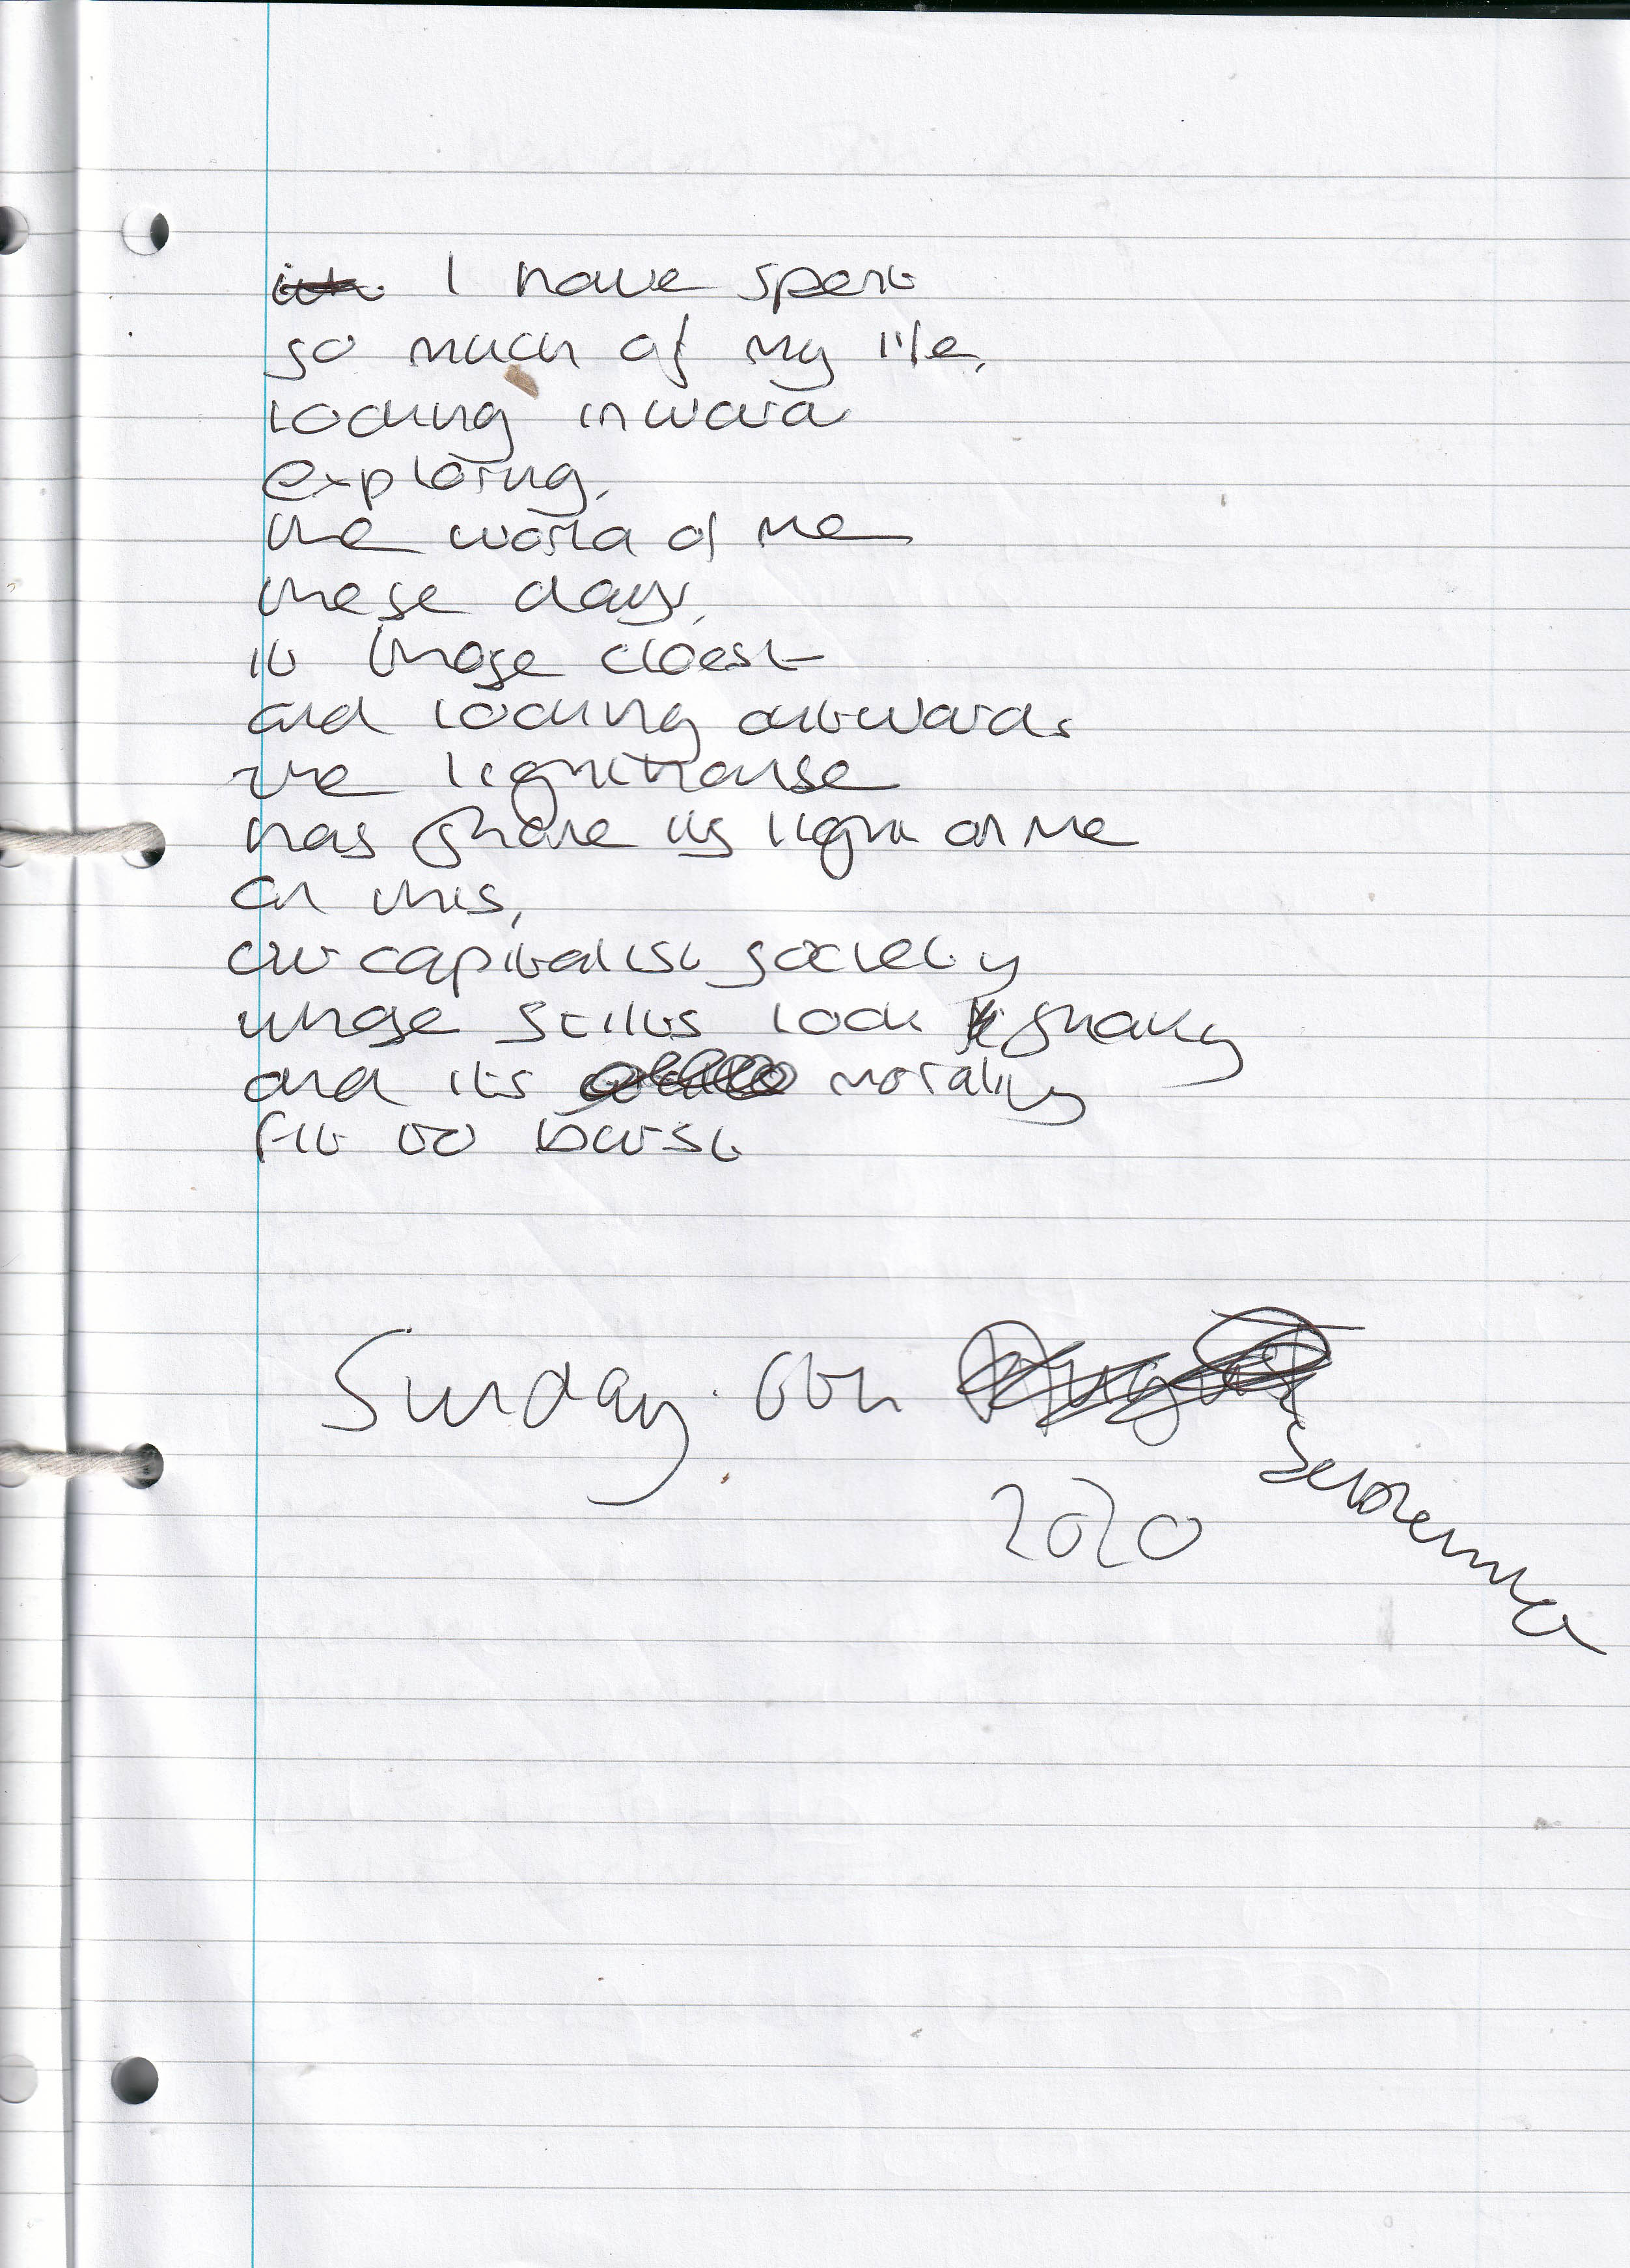 I have spent
so much of my life,
looking inward
exploring,
the world of me
these days,
it those cloest
and looking outwards
the lighthouse
has shone its light on me
on this,
our capitalist society
whose stilts look shaky
and its morality
fit to burst
Sunday. 6th
September
2020